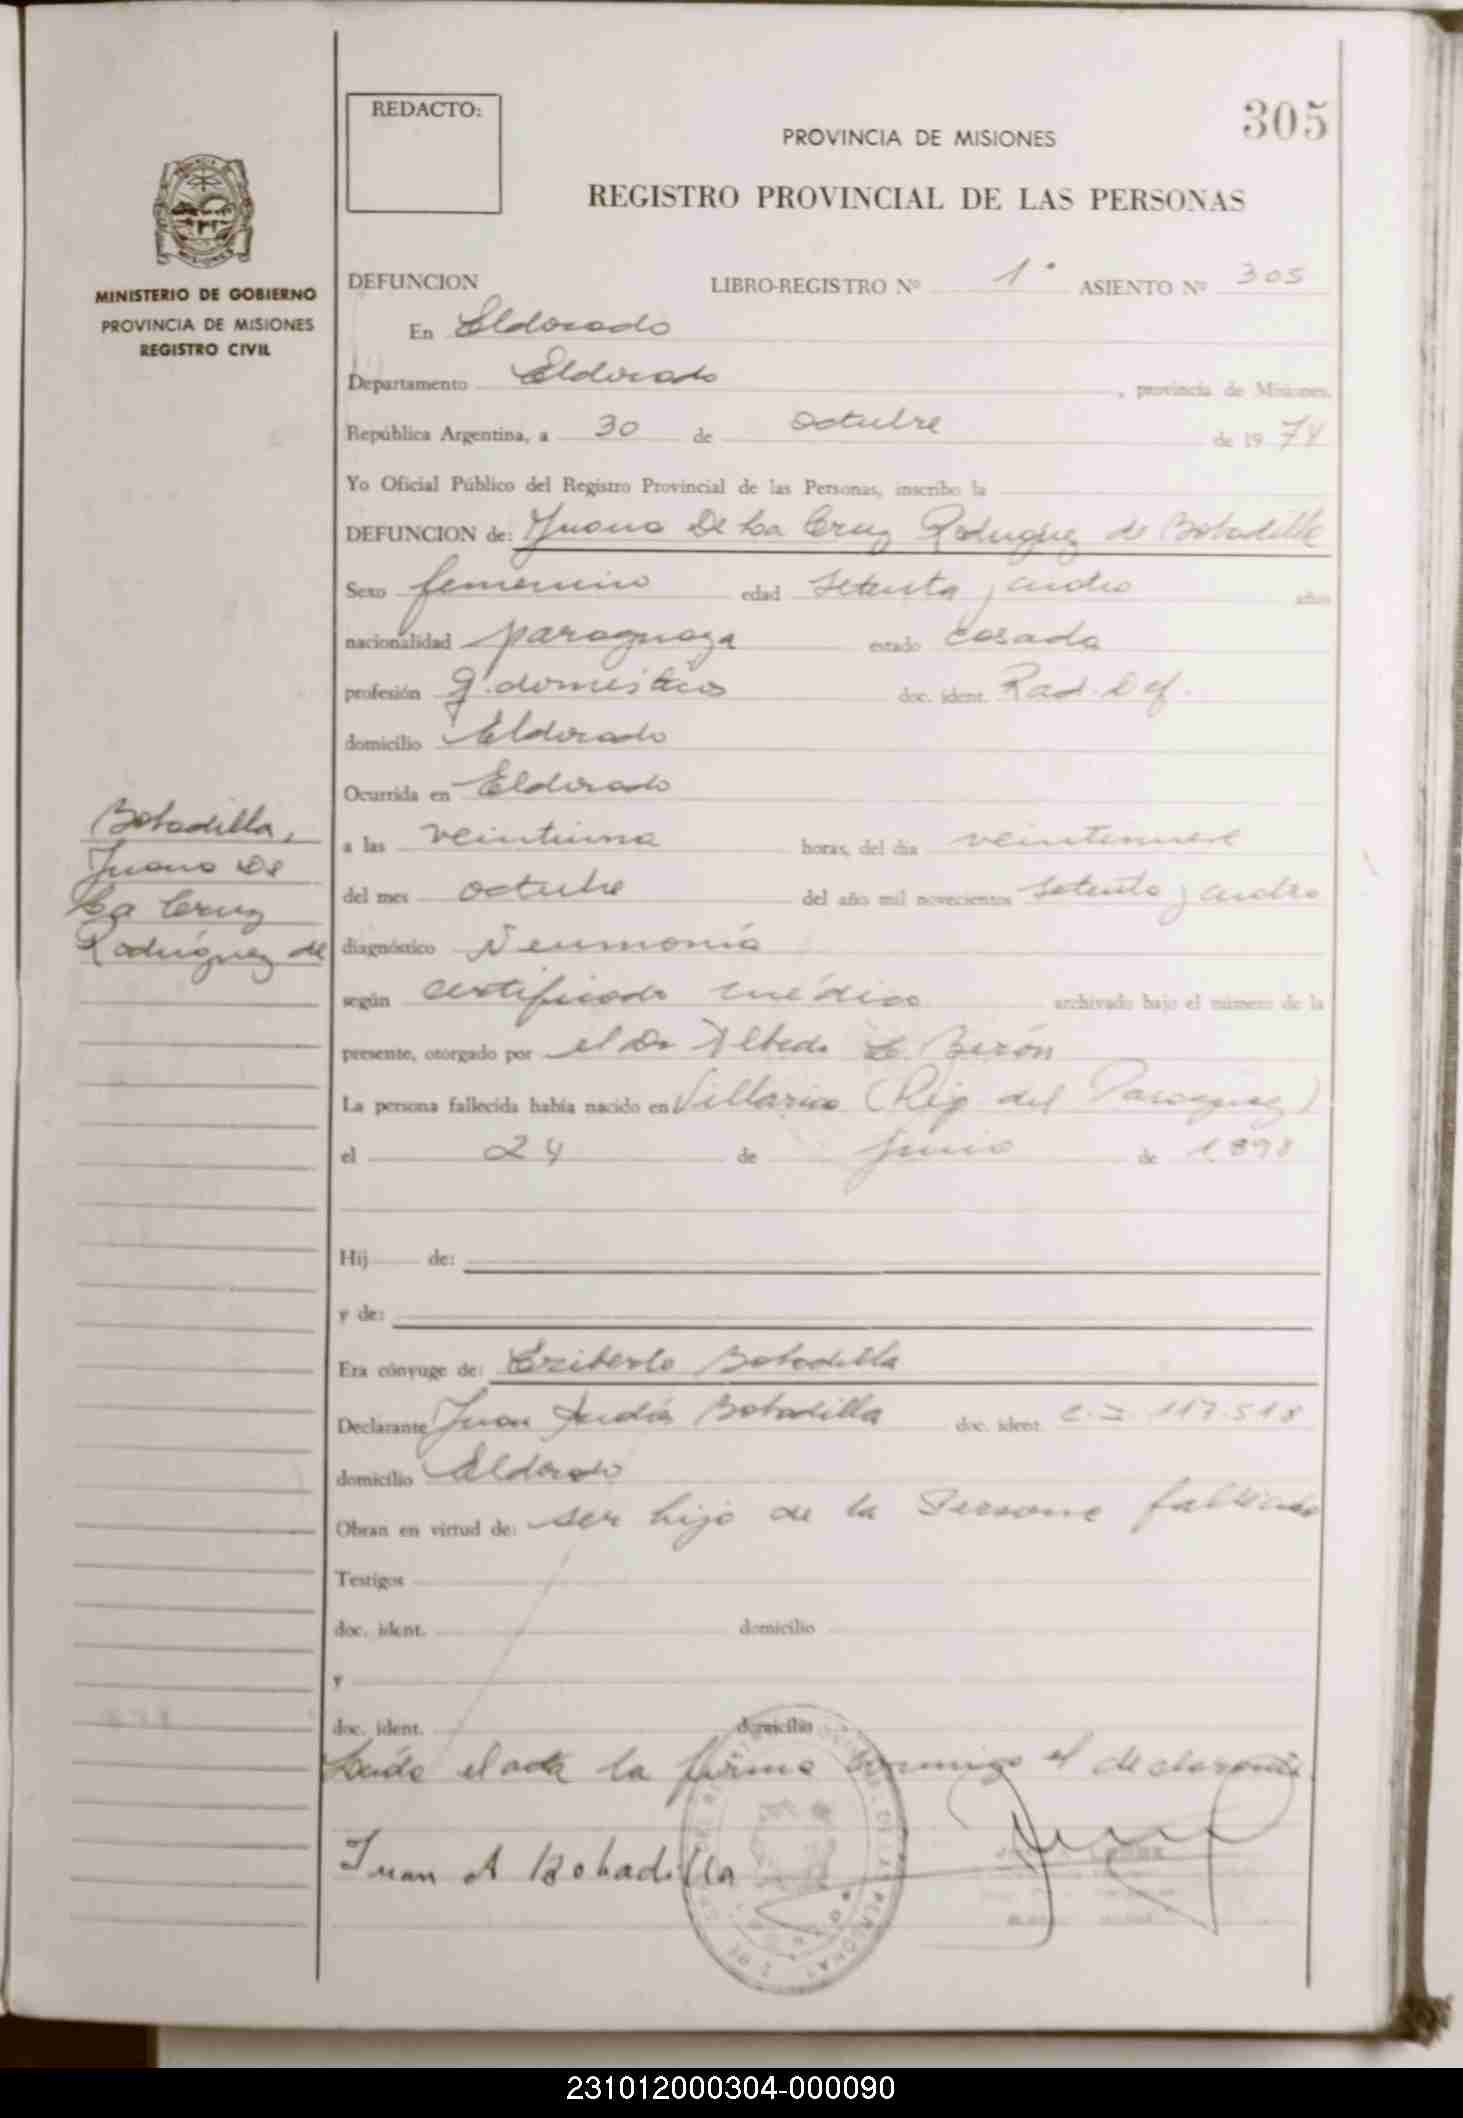 305
REDACTO:
PROVINCIA DE MISIONES
REGISTRO PROVINCIAL DE LAS PERSONAS
MINISTERIO DE GOBIERNO
PROVINCIA DE MISIONES
REGISTRO CIVIL
DEFUNCION LIBRO-REGISTRO Nº 1º ASIENTO Nº 305
En Eldorado
Departamento Eldorado, provincia de Misiones,
República Argentina, a 30 de octubre de 1974
Yo Oficial Público del Registro Provincial de las Personas, inscribo la
DEFUNCION de: Juana De La Cruz Rodriguez de Bobadilla
Sexo femenino edad setenta y cuatro años
nacionalidad paraguaya estado casada
profesión q. domésticos doc. ident. Rad. Def.
domicilio Eldorado
Ocurrida en Eldorado
a las veintiuna horas, del día veintenueve
del mes octubre del año mil novecientos setenta y cuatro
diagnóstico Neumonía
según certificado médico archivado bajo el número de la
presente, otorgado por el Dr Berón
La persona fallecida había nacido en Villarica (Rep del Paraguay)
el 24 de junio de 1898
Hij de:
y de:
Era cónyuge de: Eriberto Bobadilla
Declarante Juan Bobadilla doc. ident. C.I. 117.518
domicilio Eldorado
Obran en virtud de: ser hijo de la Persona fallecida
Testigos
doc. ident. domicilio
y
doc. ident. domicilio
Leída el acta la firma conmigo el declarante
Juan A Bobadilla
Bobadilla,
Juana De
La Cruz
Rodríguez de
231012000304-000090